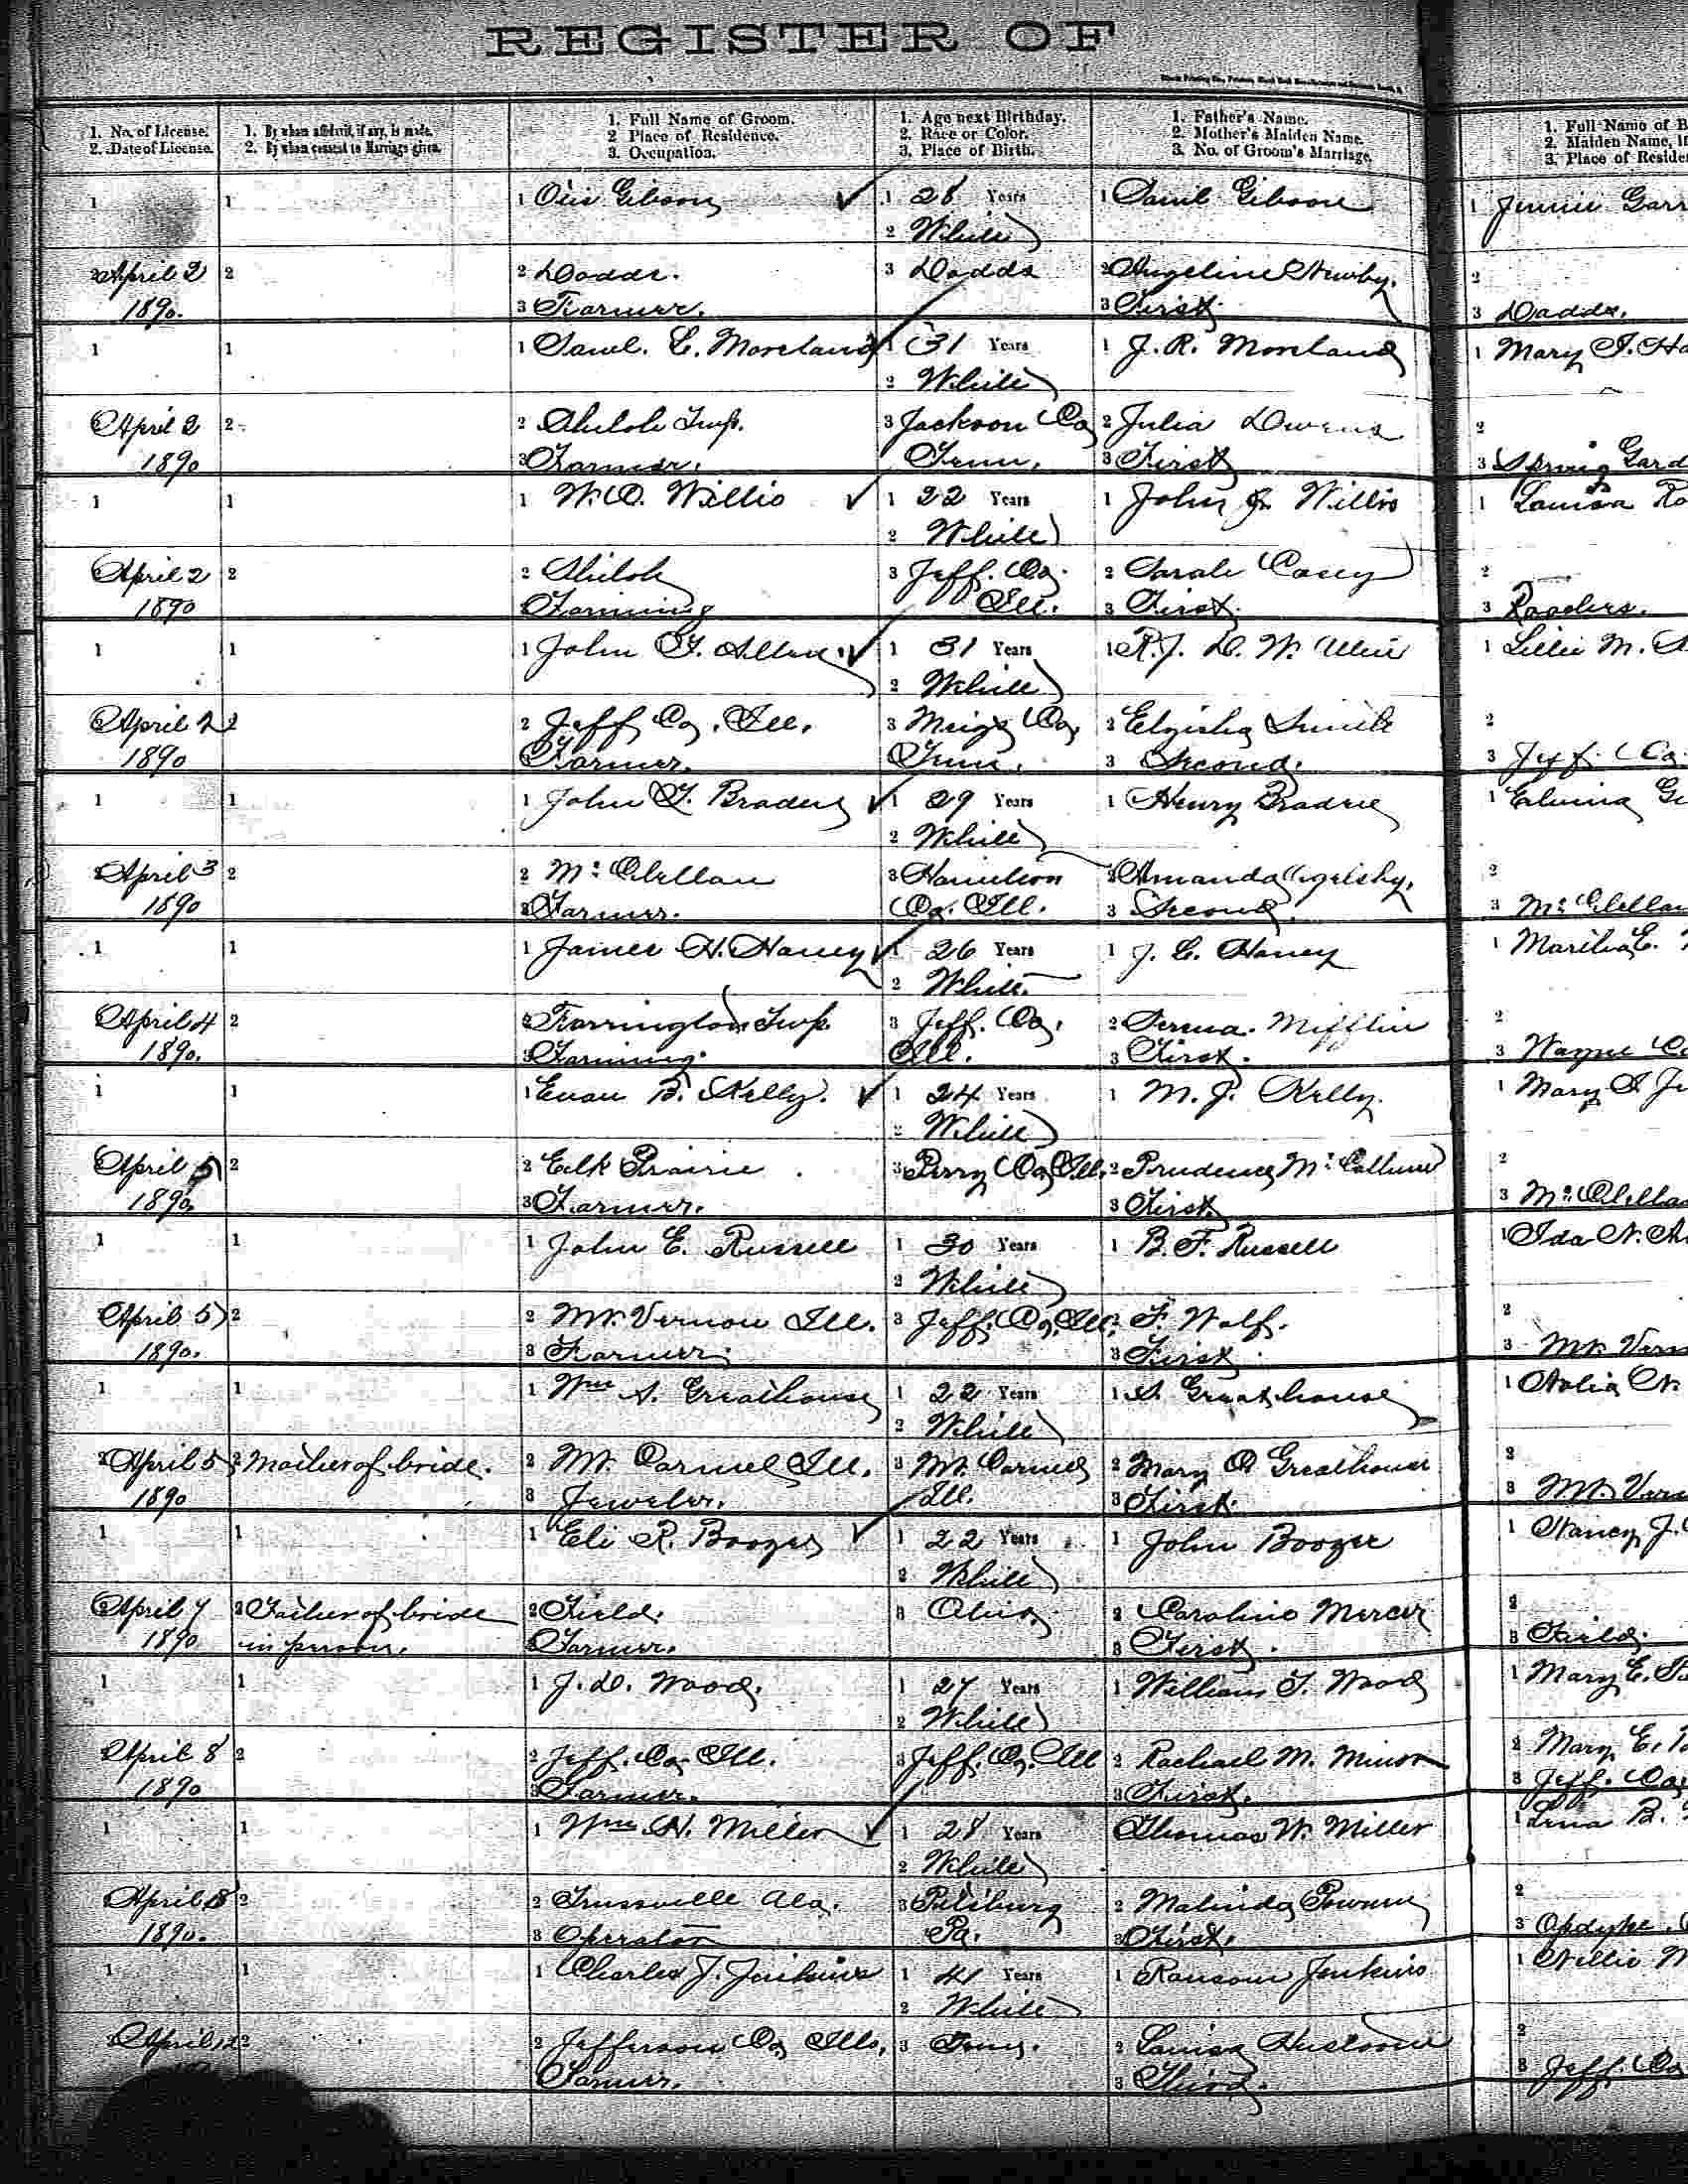 REGISTER OF
1. No. of License.
2. Date of License.
1. By whom affidavit, if any, is made.
2. By whom consent to Marriage given.
1. Full Name of Groom.
2. Place of Residence.
3. Occupation.
1. Age next Birthday.
2. Race or Color.
3. Place of Birth.
1. Father's Name.
2. Mother's Maiden Name.
3. No. of Groom's Marriage.
1. Full Name of B
2. Maiden Name, If
3. Place of Reside
1 1 1 Otis Gibson 1 28 Years 1 Saml Gibson 1 Jennie Garr
2 White
2 April 2 2 2 Dodds. 3 Dodds 2 Angeline Newby. 2
1890. 3 Farmer. 3 First. 3 Dodds.
1 1 1 Saml. E. Moreland 1 31 Years 1 J. R. Moreland 1 Mary J. Ha
2 White
April 2 2 2 Shiloh Twp. 3 Jackson Co 2 Julia Owens 2
1890 3 Farmer. Tenn. 3 First 3 Spring Gard
1 1 1 W. O. Willis 1 22 Years 1 John J. Willis 1 Louisa Ro
2 White
April 2 2 2 Shiloh 3 Jeff. Co. 2 Sarah Casey 2
1890 Farming Ill. 3 First. 3
1 1 1 John T. Allen. 1 31 Years 1 R. J. D. W. Allen 1 Lillie M.
2 White
April 2 2 2 Jeff Co. Ill. 3 Meigs Co, 2 Smith 2
1890 Farmer. Tenn. 3 Second. 3 Jeff. Co.
1 1 1 John T. Braden 1 29 Years 1 Henry Braden 1 Elvina
2 White
April 3 2 2 McClellan 3 Hamilton 2 Amanda 2
1890 3 Farmer. Co. Ill. 3 Second. 3 McClellan
1 1 1 James H. Haney 1 26 Years 1 J. C. Haney 1 Martha E.
2 White.
April 4 2 2 Farrington Twp. 3 Jeff. Co. 2 Serena. Mifflin 2
1890. 3 Farming. Ill. 3 First. 3 Wayne Co
1 1 1 Evan B. Kelly. 1 24 Years 1 M. J. Kelly. 1 Mary A
2 White
April 5 2 2 Elk Prairie 3 Perry Co, Ill. 2 Prudence McCollum 2
1890 3 Farmer. 3 First 3 McClella
1 1 1 John E. Russell 1 30 Years 1 B. F. Russell 1 Ida N.
2 White
April 5 2 2 Mt. Vernon Ill. 3 Jeff. Co, Ill. 2 F. Wolf. 2
1890. 3 Farmer. 3 First. 3 Mt. Vern
1 1 1 Wm A. Greathouse 1 22 Years 1 Greathouse 1
2 White
2 April 5 2 Mother of bride. 2 Mt. Carmel Ill. 3 Mt. Carmel 2 Mary A Greathouse 2
1890 3 Jeweler. Ill. 3 First. 3 Mt. Vern
1 1 1 Eli R. Boozer 1 22 Years 1 John Boozer 1 Nancy J.
2 White
April 7 2 Father of bride 2 Field. 3 Ohio 2 Caroline Mercer 2
1890 in person. Farmer. 3 First. 3 Field.
1 1 1 J. D. Wood. 1 27 Years 1 William T. Wood 1 Mary E.
2 White
April 8 2 2 Jeff. Co Ill. 3 Jeff. Co. Ill 2 Rachael M. Minor 2 Mary E.
1890 Farmer. 3 First. 3 Jeff. Co,
1 1 1 Wm H. Miller 1 28 Years Thomas W. Miller 1 B.
2 White
April 8 2 2 Trussville Ala. 3 Pittsburg 2 Malinda 2
1890. 3 Operator Pa. 3 First. 3 Opdyke
1 1 1 Charles J. Jenkins 1 41 Years 1 Ransom Jenkins 1 Nellie M
2 White
April 12 2 2 Jefferson Co Ills. 3 Tenn. 2 Louisa 2
Farmer. 3 Third. 3 Jeff. Co